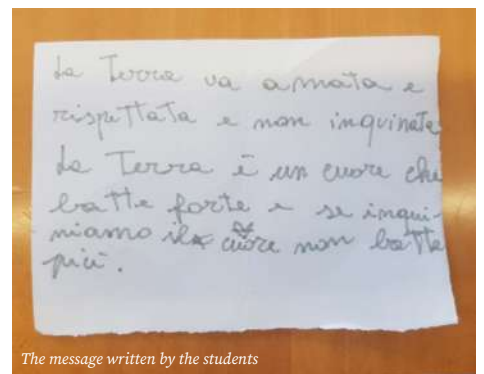 La Terra va amata e
rispettata e non inquinata
La Terra è un cuore che
batte forte e se inqui-
niamo il cuore non batte
più.
The message written by the students